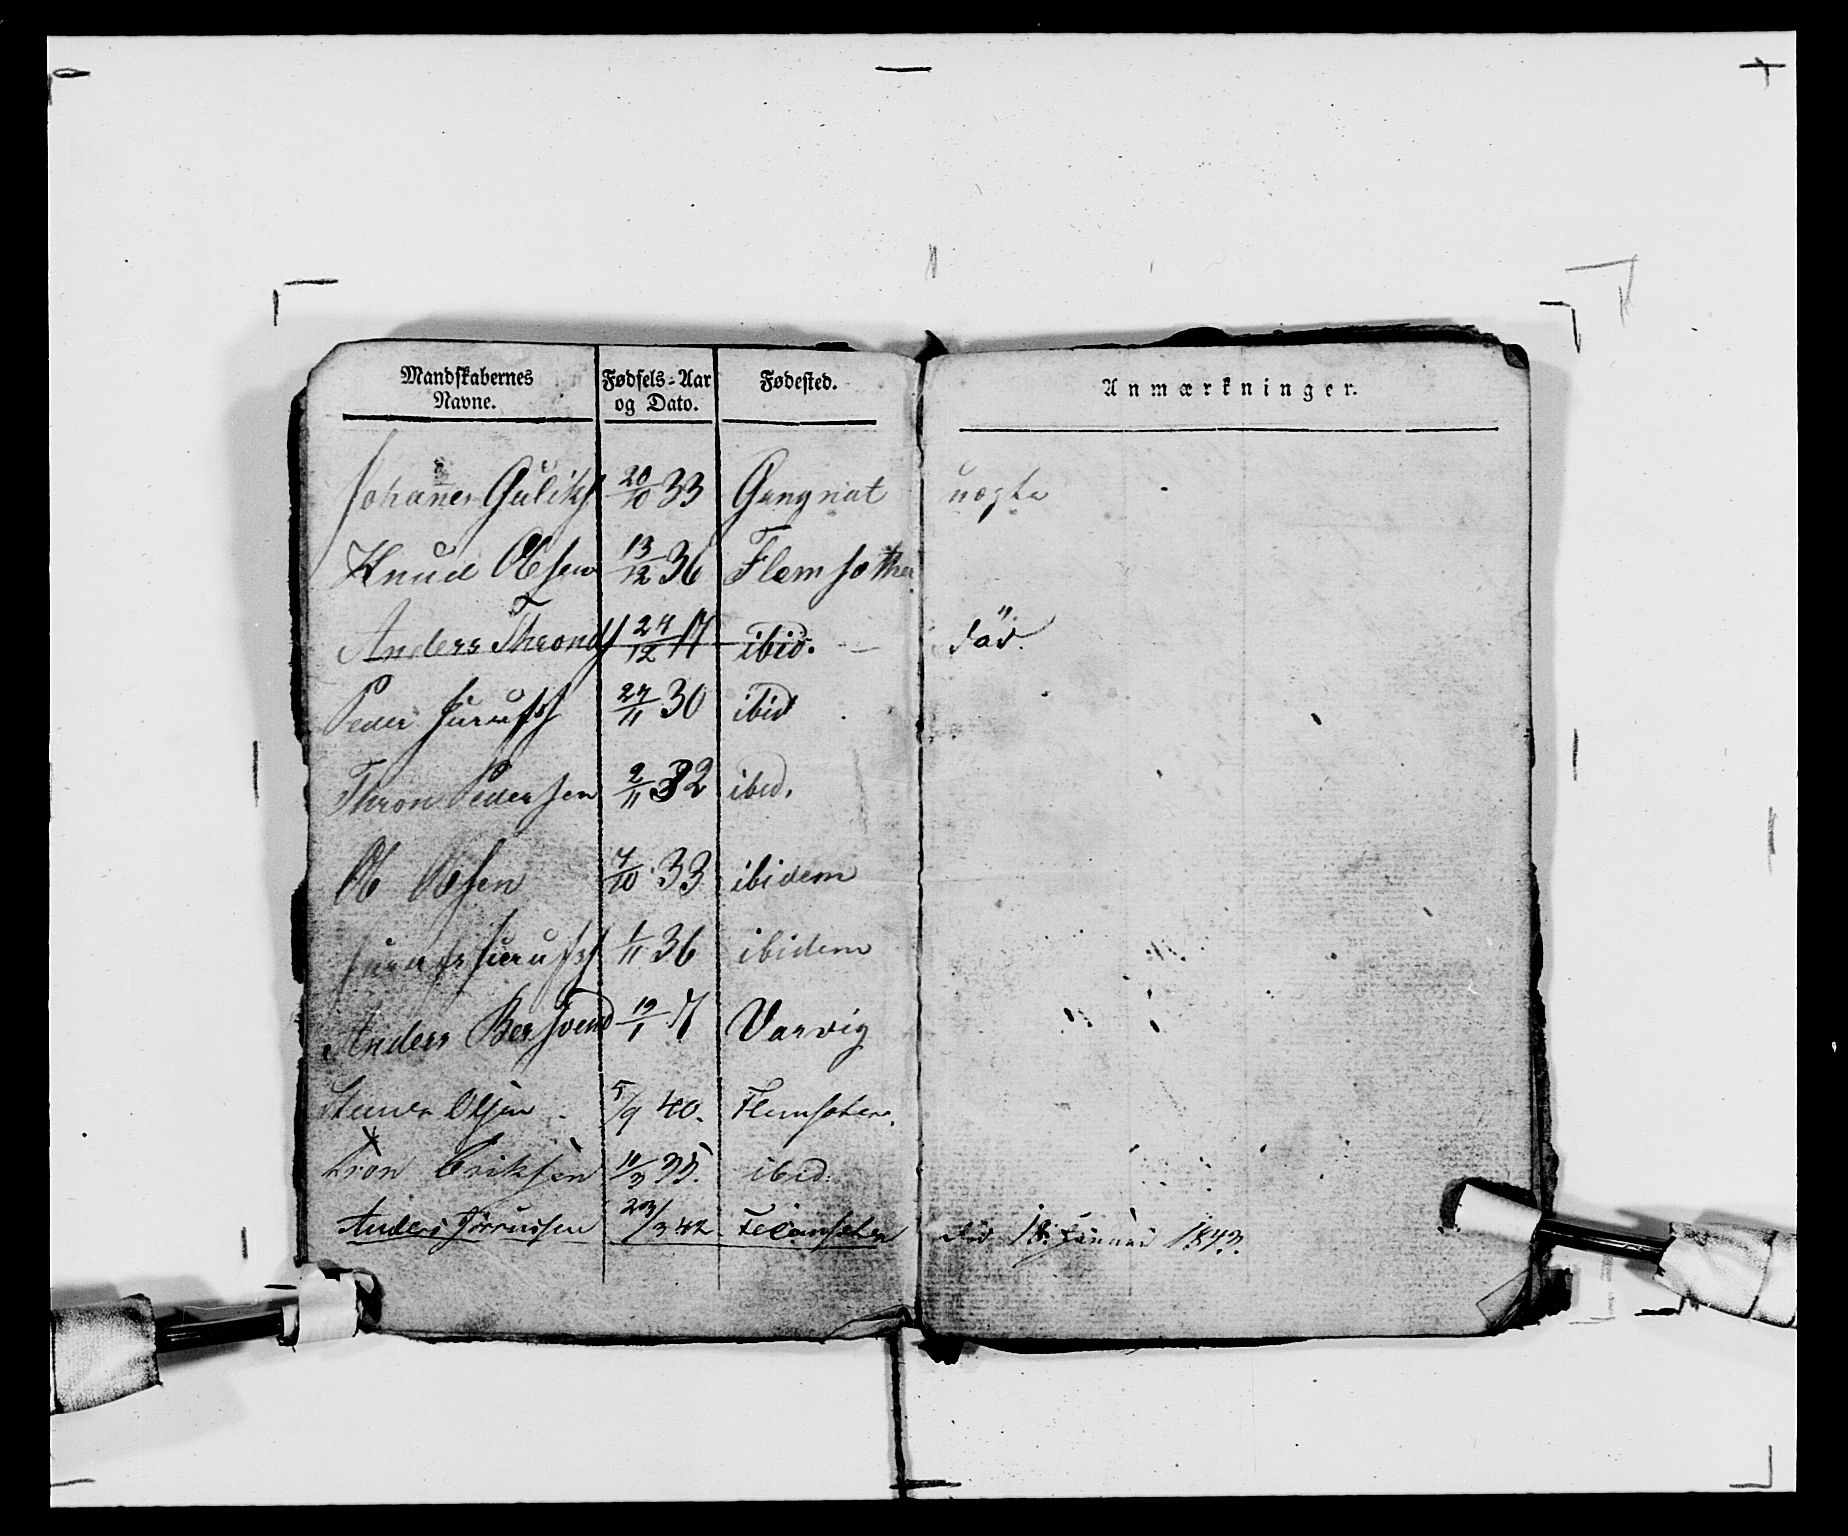 Mandskabernes Navne.
Fødsels-Aar og Dato.
Fødested.
Anmærkninger.
Johannes Guliks 20/10 33 Gangnat
Knud Olsen 13/12 36 Flemsother
Anders Thronds 24/12 17 ibid. död.
Peder 24/11 30 ibid
Thron Pedersen 2/11 32 ibid.
Ole Olsen 7/10 33 ibidem
1/11 36 ibidem
Anders Bersvend 19/1 17 Varvig
Olsen 5/9 40. Flemsoteren.
Tron Eriksen 10/3 35. ibid.
Anders 23/3 42 död 18. Januar 1843.